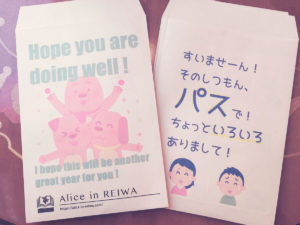 Hope you are
doing well !
I hope this will be another
great year for you !
Alice in REIWA
すいませーん！
そのしつもん、
パスで！
ちょっといろいろ
ありまして！